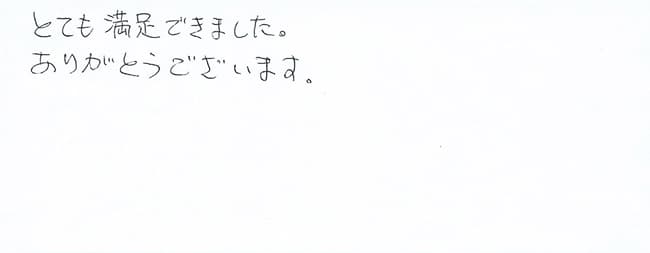 とても満足できました。
ありがとうございます。